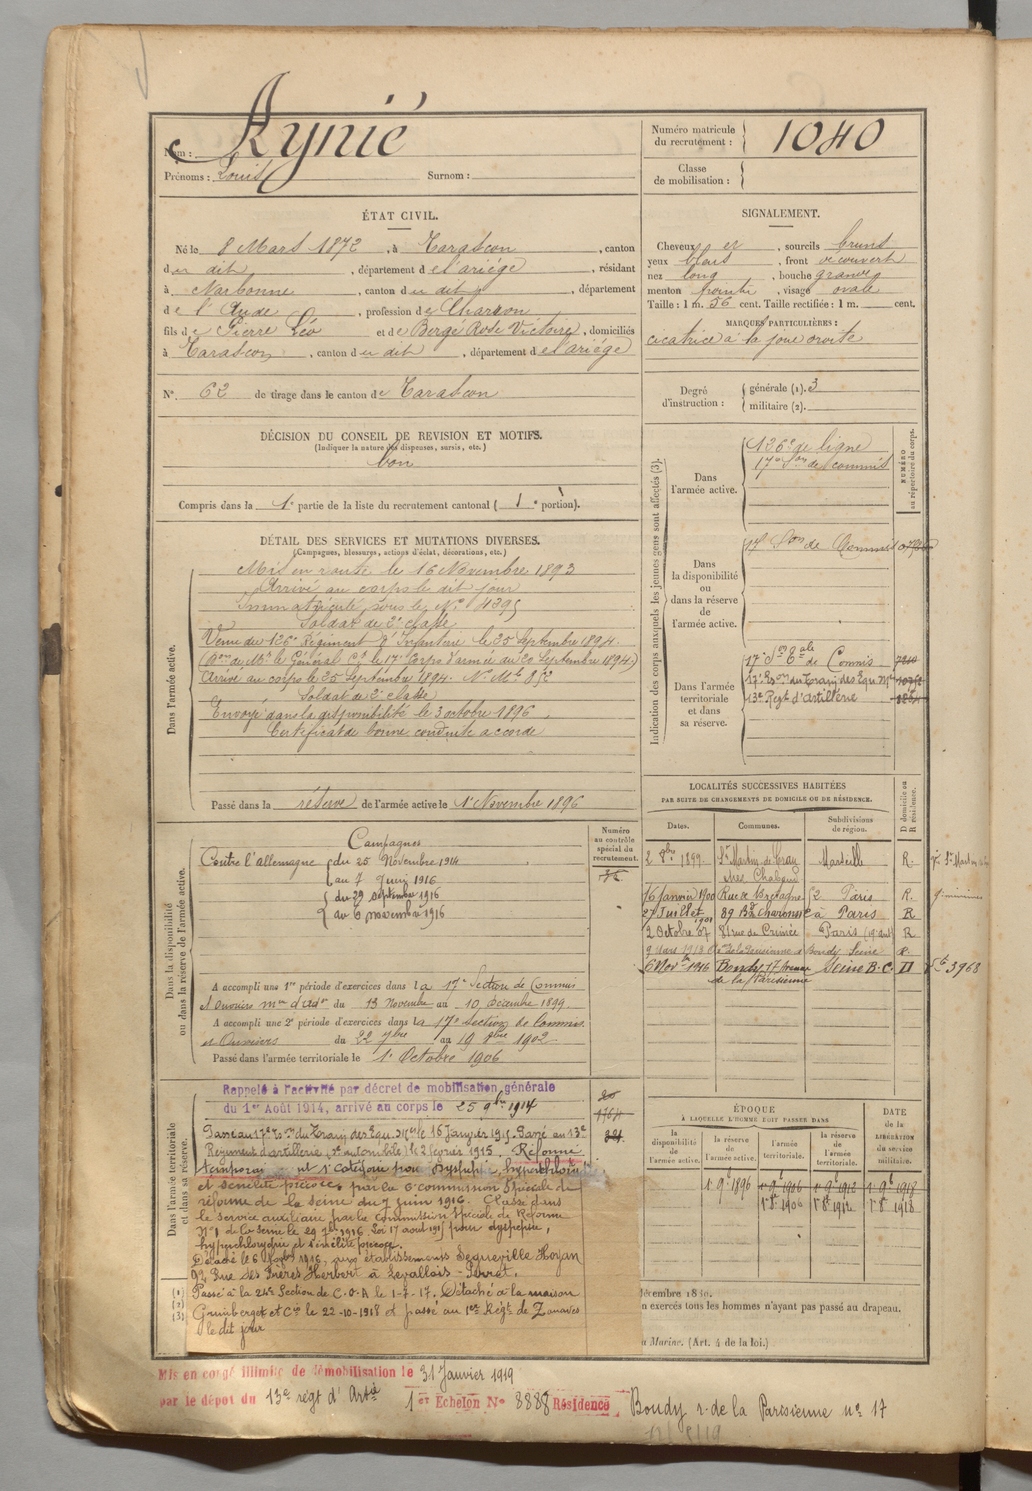 Nom : Rynié
Prénoms : Louis Surnom :
Numéro matricule du recrutement : 1040
Classe de mobilisation :
ÉTAT CIVIL.
Né le 8 Mars 1872, à Tarascon, canton
du dit, département de l'ariège, résidant
à Narbonne, canton du dit, département
de l'Aude, profession de Charron
fils de Pierre Léo et de Bergé Rose Victoire, domiciliés
à Tarascon, canton du dit, département de l'ariège
N° 62 de tirage dans le canton de Tarascon
SIGNALEMENT.
Cheveux et, sourcils bruns
yeux bleus, front découvert
nez long, bouche grande
menton pointu, visage ovale
Taille : 1 m. 56 cent. Taille rectifiée : 1 m. cent.
MARQUES PARTICULIÈRES :
cicatrice à la joue droite
Degré d'instruction : générale (1). 3
militaire (2).
DÉCISION DU CONSEIL DE REVISION ET MOTIFS.
(Indiquer la nature des dispenses, sursis, etc.)
bon
Compris dans la 1e partie de la liste du recrutement cantonal ( 1e portion).
DÉTAIL DES SERVICES ET MUTATIONS DIVERSES.
(Campagnes, blessures, actions d'éclat, décorations, etc.)
Dans l'armée active.
Mis en route le 16 Novembre 1893
Arrivé au corps le dit jour
Immatriculé sous le N° 4395
Soldat de 2e classe
Venu du 126e Régiment d'Infanterie le 25 Septembre 1894.
arrivé au corps le 25 Septembre 1894. N° Mle 852
Soldat de 2e classe
Envoyé dans la disponibilité le 3 octobre 1896
Certificat de bonne conduite accordé
Passé dans la réserve de l'armée active le 1e Novembre 1896
Indication des corps auxquels les jeunes gens sont affectés (3).
NUMÉRO au répertoire du corps.
Dans l'armée active.
126e de ligne
17e Son de commis
Dans la disponibilité ou dans la réserve de l'armée active.
17e Son de Commis
Dans l'armée territoriale et dans sa réserve.
17e Son Eale de Commis
13e Régt d'artillerie
LOCALITÉS SUCCESSIVES HABITÉES
PAR SUITE DE CHANGEMENTS DE DOMICILE OU DE RÉSIDENCE.
Dates. Communes. Subdivisions de région. D domicile ou R résidence.
2 8bre 1899 St Martin de Crau Marseille R.
16 Janvier 1900 Rue de Bretagne 62 Paris R.
27 Juillet 1901 89 Bd Charonne à Paris R
2 Octobre 07 81 rue de Crimée Paris R
Bondy Seine R.
6 Nov 1916 Bondy 17 Avenue de la Parisienne Seine B.C. D
3968
Dans la disponibilité ou dans la réserve de l'armée active.
Numéro au contrôle spécial du recrutement.
Campagnes
Contre l'allemagne du 25 Novembre 1914
au 7 Juin 1916
du 29 septembre 1916
au 6 novembre 1916
A accompli une 1re période d'exercices dans la 17e Section de Commis
et Ouvriers mres d'Adon du 13 Novembre au 10 Décembre 1899
A accompli une 2e période d'exercices dans la 17e Section de Commis
et Ouvriers du 22 7bre au 19 8bre 1902
Passé dans l'armée territoriale le 1e Octobre 1906
Dans l'armée territoriale et dans sa réserve.
Rappelé à l'activité par décret de mobilisation générale
du 1er Août 1914, arrivé au corps le 25 9bre 1914
Passé au 17e Eson du Train des Equ. Mres le 16 Janvier 1915. Passé au 13e
Régiment d'artillerie, Son automobile, le 2 février 1915. Réformé
et sénilité précoce, par la Commission Spéciale de
réforme de la Seine du 7 juin 1916. Classé dans
le service auxiliaire par la Commission Spéciale de Réforme
N° 1 de la Seine le 29 7bre 1916, Loi 17 août 1915 pour dyspepsie,
hyperchlorydrie et sénélité précoce.
Détaché le 6 Novbre 1916, aux établissements Sequeville Hoyau
92, Rue des Frères Herbert à Levallois-Perret.
Passé à la 24e Section de C.O.A le 1-7-17. Détaché à la maison
Grunberget et Cie le 22-10-1918 et passé au 1er Régt de Zouaves
le dit jour
(1)
(2)
(3)
ÉPOQUE
À LAQUELLE L'HOMME DOIT PASSER DANS
DATE de la LIBÉRATION DU service militaire.
la disponibilité de l'armée active. la réserve de l'armée active. l'armée territoriale. la réserve de l'armée territoriale.
1e 9e 1896 1e 9e 1906 1e 9e 1912 1e 9e 1918
1e 8e 1906 1e 8e 1912 1e 8e 1918
n exercés tous les hommes n'ayant pas passé au drapeau.
a Marine. (Art. 4 de la loi.)
Mis en congé illimité de démobilisation le 31 Janvier 1919
par le dépot du 13e régt d'Artie 1er Echelon N° 8888 Résidence Bondy r. de la Parisienne n° 17